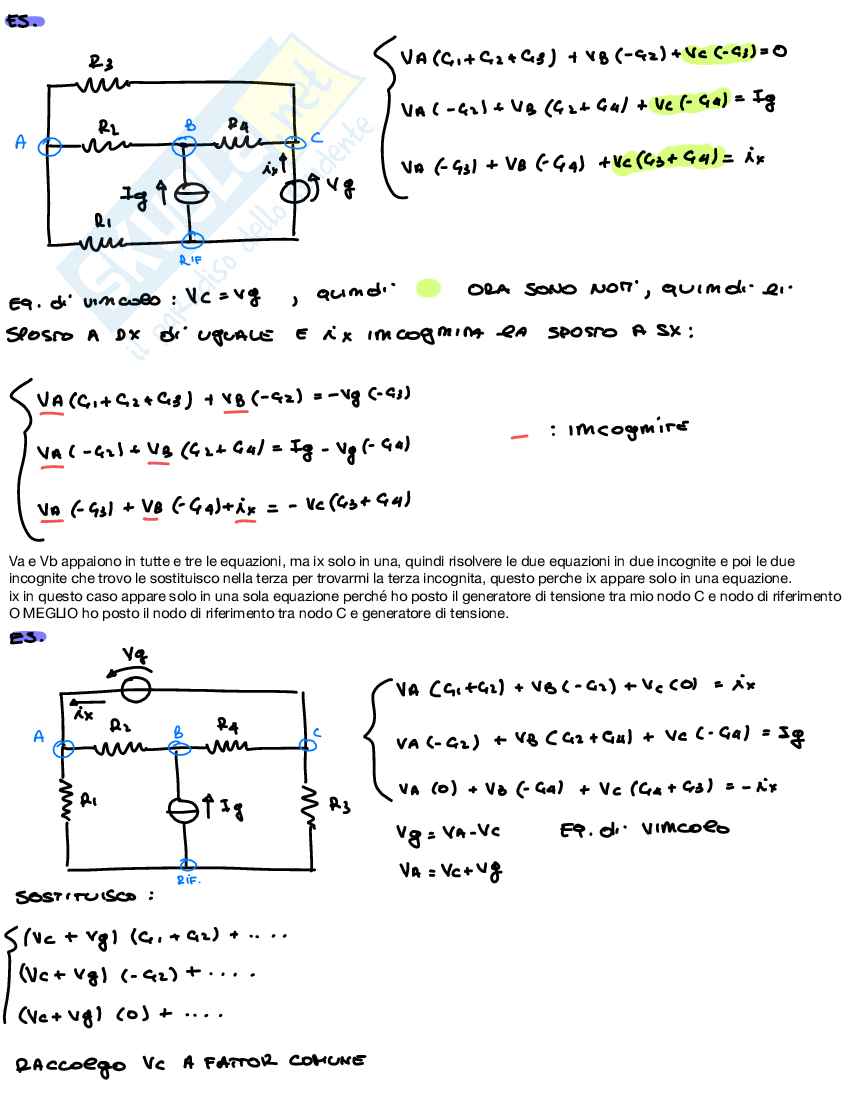 ES.
R3
A
R2
B
R4
C
ix
Vg
Ig
R1
RIF
VA (G1+G2+G3) + VB (-G2) + VC (-G3) = 0
VA (-G2) + VB (G2 + G4) + VC (-G4) = Ig
VA (-G3) + VB (-G4) + VC (G3 + G4) = ix
EQ. di vincolo : VC = Vg , quindi ORA SONO NOTI, quindi li
SPOSTO A DX di UGUALE E ix INCOGNITA LA SPOSTO A SX :
VA (G1+G2+G3) + VB (-G2) = -Vg (-G3)
VA (-G2) + VB (G2+G4) = Ig - Vg (-G4)
VA (-G3) + VB (-G4) + ix = - VC (G3 + G4)
: INCOGNITE
Va e Vb appaiono in tutte e tre le equazioni, ma ix solo in una, quindi risolvere le due equazioni in due incognite e poi le due
incognite che trovo le sostituisco nella terza per trovarmi la terza incognita, questo perche ix appare solo in una equazione.
ix in questo caso appare solo in una sola equazione perché ho posto il generatore di tensione tra mio nodo C e nodo di riferimento
O MEGLIO ho posto il nodo di riferimento tra nodo C e generatore di tensione.
ES.
Vg
ix
A
R2
B
R4
C
R1
Ig
R3
RIF.
VA (G1+G2) + VB (-G2) + VC (0) = ix
VA (-G2) + VB (G2+G4) + VC (-G4) = Ig
VA (0) + VB (-G4) + VC (G4 + G3) = - ix
Vg = VA - VC EQ. di VINCOLO
VA = VC + Vg
SOSTITUISCO :
(VC + Vg) (G1 + G2) + ....
(VC + Vg) (-G2) + ....
(VC + Vg) (0) + ....
RACCOLGO VC A FATTOR COMUNE